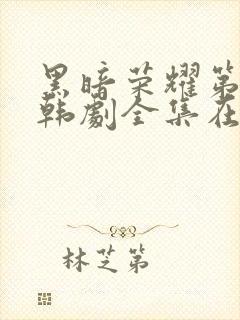 黑暗荣耀第
韩剧全集在
林芝第